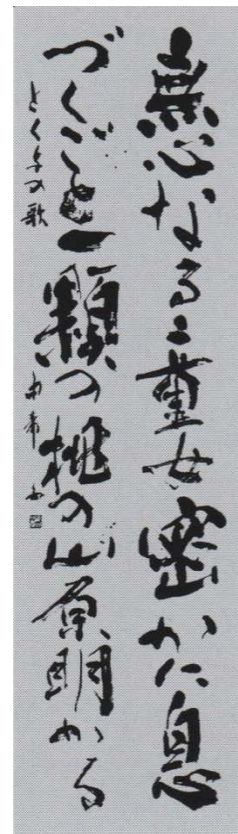 無心なる童女密かに息
づくごと一顆の桃の山原明かる
の歌